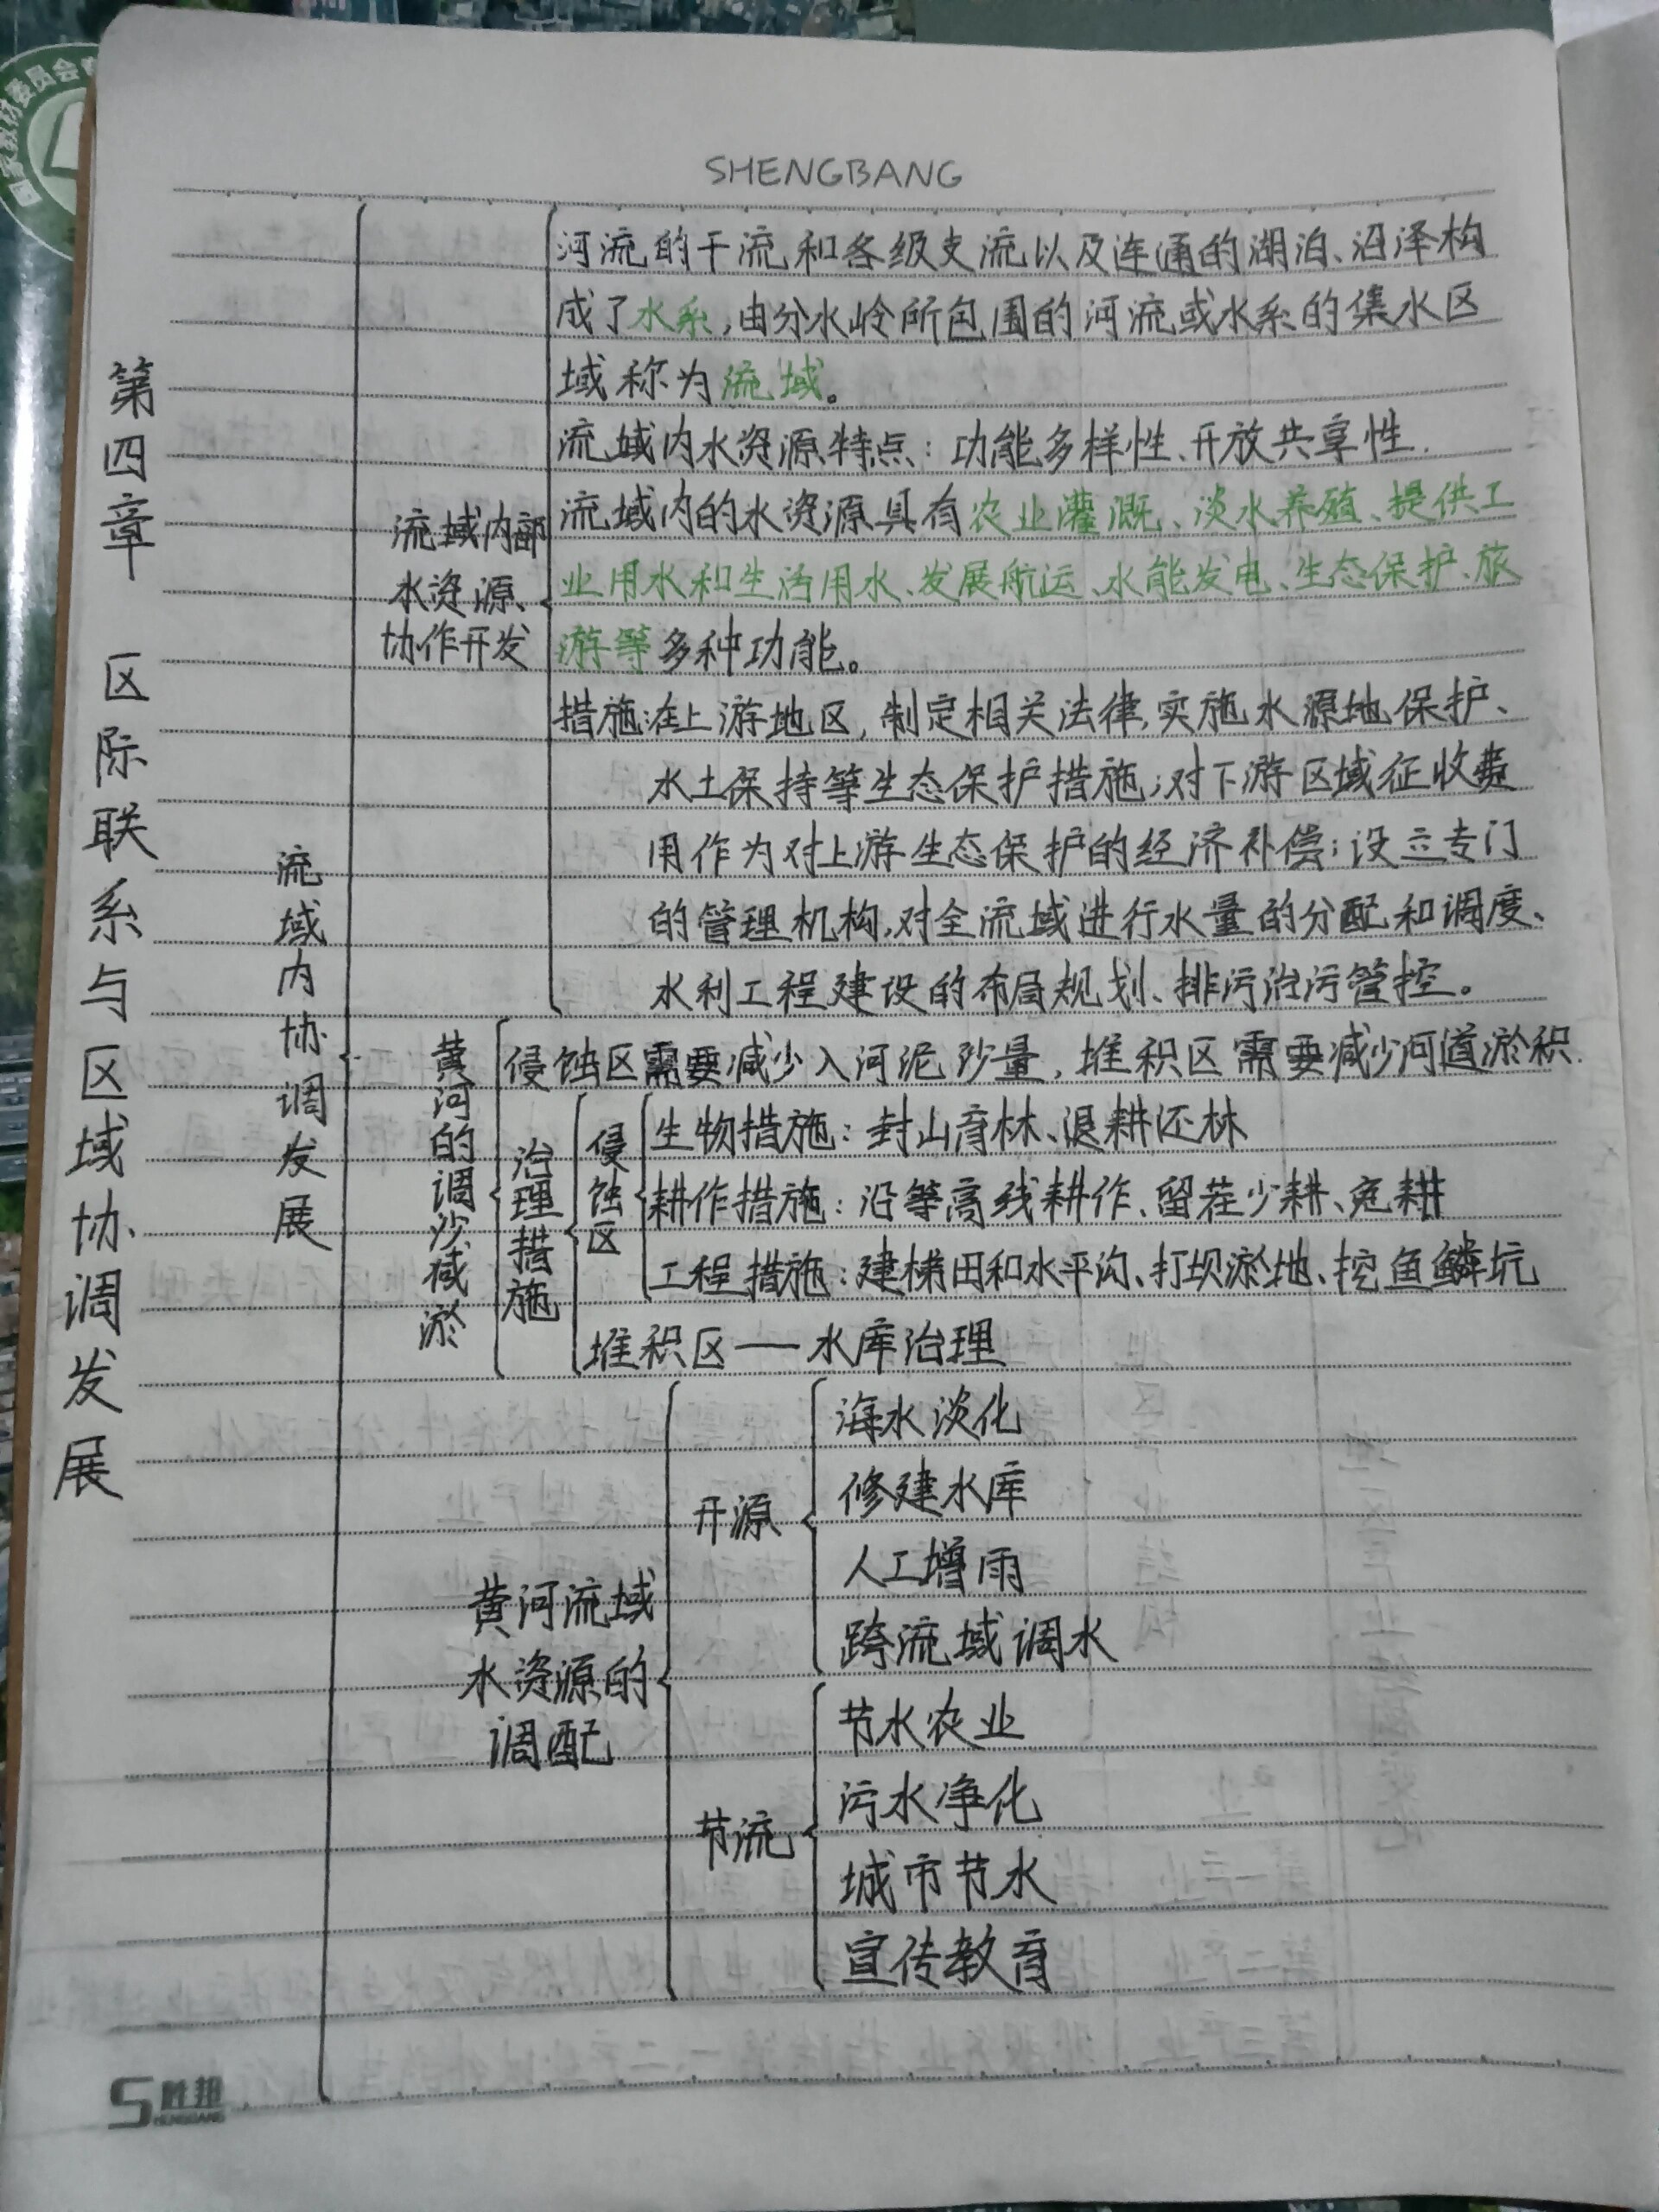 SHENGBANG
第四章 区际联系与区域协调发展
流域内协调发展
流域内部
水资源、
协作开发
河流的干流和各级支流以及连通的湖泊、沼泽构
成了水系,由分水岭所包围的河流或水系的集水区
域称为流域。
流域内水资源特点:功能多样性、开放共享性.
流域内的水资源具有农业灌溉、淡水养殖、提供工
业用水和生活用水、发展航运、水能发电、生态保护、旅
游等多种功能。
措施:在上游地区,制定相关法律,实施水源地保护、
水土保持等生态保护措施;对下游区域征收费
用作为对上游生态保护的经济补偿;设立专门
的管理机构,对全流域进行水量的分配和调度、
水利工程建设的布局规划、排污治污管控。
黄河的调沙减淤
侵蚀区需要减少入河泥沙量,堆积区需要减少河道淤积.
治理措施
侵蚀区
生物措施:封山育林、退耕还林
耕作措施:沿等高线耕作、留茬少耕、免耕
工程措施:建梯田和水平沟、打坝淤地、挖鱼鳞坑
堆积区——水库治理
黄河流域
水资源的
调配
开源
海水淡化
修建水库
人工增雨
跨流域调水
节流
节水农业
污水净化
城市节水
宣传教育
胜邦
SHENGBANG